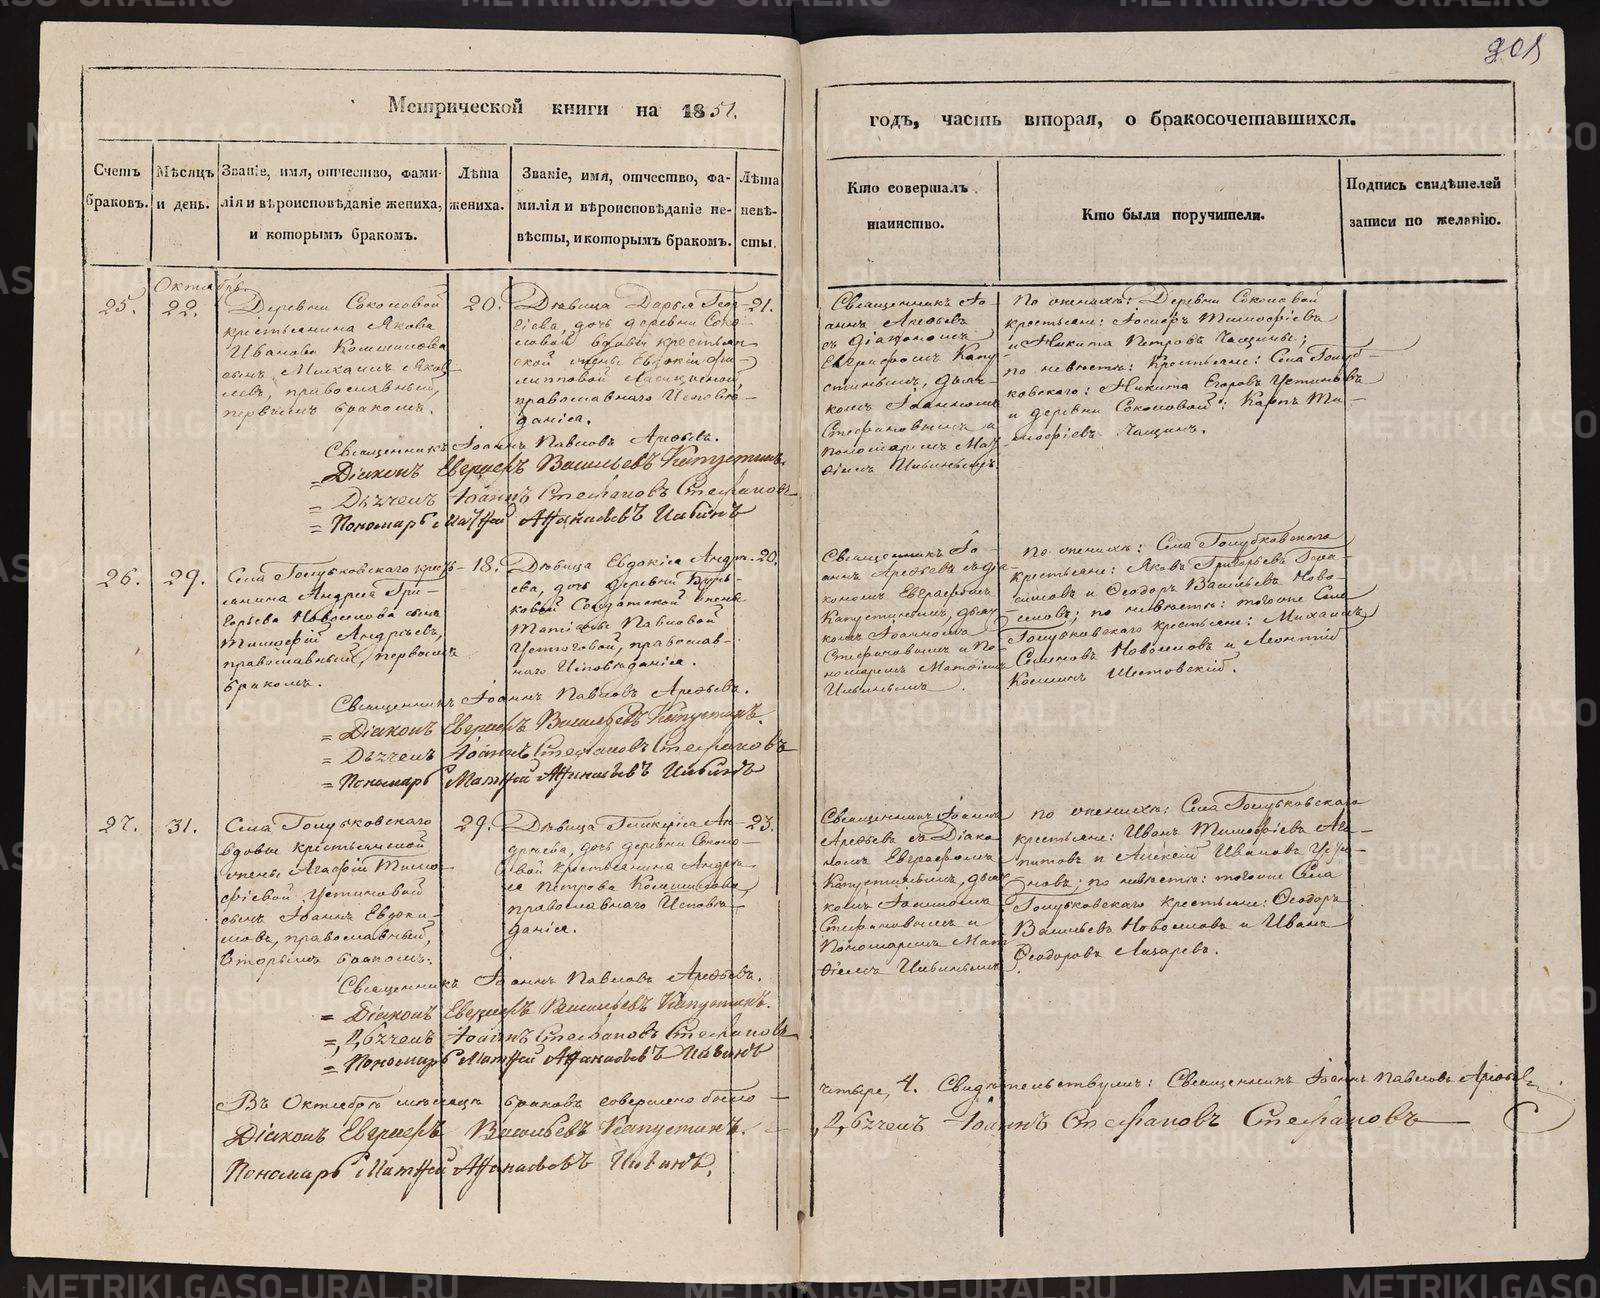 901
Метрической книги на 1851.
годъ, часть вторая, о бракосочетавшихся.
Счетъ браковъ.
Мѣсяцъ и день.
Званіе, имя, отчество, фами-
лія и вѣроисповѣданіе жениха,
и которымъ бракомъ.
Лѣта
жениха.
Званіе, имя, отчество, фа-
милія и вѣроисповѣданіе не-
вѣсты, и которымъ бракомъ.
Лѣта
невѣ-
сты.
Кто совершалъ
таинство.
Кто были поручители.
Подпись свидѣтелей
записи по желанію.
Октябрь
25.
22.
Деревни Соколовой
крестьянина Якова
Иванова
сынъ Михаилъ Яков-
левъ, православный,
первымъ бракомъ.
20.
Дѣвица Дарья Геор-
гіева, дочь деревни Соко-
ловой вдовы крестьян-
ской жены Евдокіи Фи-
липповой
православнаго Исповѣ-
данія.
21.
Священникъ Іо-
аннъ Арефьевъ
съ Діакономъ
Евграфомъ Капу-
стинымъ, дьяч-
комъ Іоанномъ
Стефановымъ и
пономаремъ Мат-
фіемъ
По женихѣ: Деревни Соколовой
крестьяне: Іосифъ Тимофѣевъ
и Никита Петровъ Чащины;
по невѣстѣ: Крестьяне: Села Голуб-
ковскаго: Никита Егоровъ Устиновъ
и деревни Соколовой: Карпъ Ти-
мофѣевъ Чащинъ.
Священникъ Іоаннъ Павловъ Арефьевъ.
= Діаконъ Евграфъ Васильевъ Капустинъ.
= Дьячекъ Іоаннъ Стефановъ Стефановъ
= Пономарь Матѳей Аѳанасьевъ
26.
29.
Села Голубковскаго кресть-
янина Андрея Гри-
горьева Новоселова сынъ
Тимофей Андреевъ,
православный, первымъ
бракомъ.
18.
Дѣвица Евдокія Андре-
ева, дочь деревни
Солдатской жены
Павловой
Устюговой, православ-
наго Исповѣданія.
20.
Священникъ Іо-
аннъ Арефьевъ съ діа-
кономъ Евграфомъ
Капустинымъ, дьяч-
комъ Іоанномъ
Стефановымъ и По-
номаремъ Матфіемъ
По женихѣ: Села Голубковскаго
крестьяне: Яковъ Григорьевъ
и Феодоръ Васильевъ Ново-
селовъ; по невѣстѣ: того же Села
Голубковскаго крестьяне: Михаилъ
Семеновъ Новоселовъ и Леонтій
Косминъ
Священникъ Іоаннъ Павловъ Арефьевъ.
= Діаконъ Евграфъ Васильевъ Капустинъ.
= Дьячекъ Іоаннъ Стефановъ Стефановъ
= Пономарь Матѳей Аѳанасьевъ
27.
31.
Села Голубковскаго
вдовы крестьянской
жены Агафіи Тимо-
фѣевой Устиновой
сынъ Іоаннъ Евдоки-
мовъ, православный,
вторымъ бракомъ.
29.
Дѣвица Гликерія Ан-
дреева, дочь деревни Соколо-
вой крестьянина Андре-
я Петрова
православнаго Исповѣ-
данія.
23.
Священникъ Іоаннъ
Арефьевъ съ Діако-
номъ Евграфомъ
Капустинымъ, дьяч-
комъ Іоанномъ
Стефановымъ и
Пономаремъ Мат-
фіемъ
по женихѣ: Села Голубковскаго
крестьяне: Иванъ Тимофѣевъ
и Алексѣй Ивановъ Усти-
новъ; по невѣстѣ: того же Села
Голубковскаго крестьяне: Феодоръ
Васильевъ Новоселовъ и Иванъ
Феодоровъ Лазаревъ.
Священникъ Іоаннъ Павловъ Арефьевъ.
= Діаконъ Евграфъ Васильевъ Капустинъ.
= Дьячекъ Іоаннъ Стефановъ Стефановъ
= Пономарь Матѳей Аѳанасьевъ
Въ Октябрѣ мѣсяцѣ браковъ совершено было
четыре, 4. Свидѣтельствуютъ: Священникъ Іоаннъ Павловъ Арефьевъ
Діаконъ Евграфъ Васильевъ Капустинъ.
Дьячекъ Іоаннъ Стефановъ Стефановъ
Пономарь Матѳей Аѳанасьевъ
METRIKI.GASO-URAL.RU